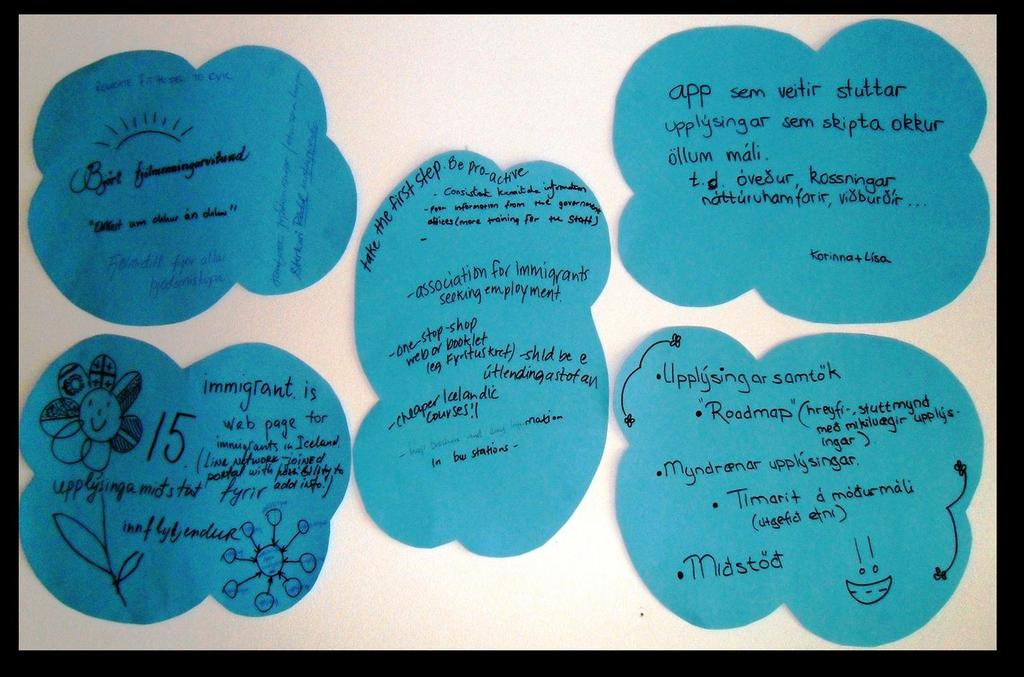 REMOTE
TO RVK
Björt fjölmenningarvitund
"Ekkert um okkur án okkar"
fyrir alla
take the first step. Be pro-active
- Consistent information
- Poor information from the government
offices (more training for the staff)
-
- association for immigrants
seeking employment.
- one-stop-shop
web or booklet
(eg Fyrituskref) - shld be e
útlendingastofan
- cheaper Icelandic
courses!!
in bus stations -
app sem veitir stuttar
upplýsingar sem skipta okkur
öllum máli.
t.d. óveður, kossningar
náttúruhamfarir, viðburðir...
Korinna + Lísa
15.
immigrant.is
web page for
immigrants in Iceland.
(LINK NETWORK - JOINED
portal with possibility to
add info!)
upplýsingamiðstöð fyrir
innflytjendur
• Upplýsingar samtök
• "Roadmap" (hreyfi-, stuttmynd
með mikilvægir upplýs-
ingar)
• Myndrænar upplýsingar.
• Tímarit á móðurmáli
(útgefið efni)
• Miðstöð
!!